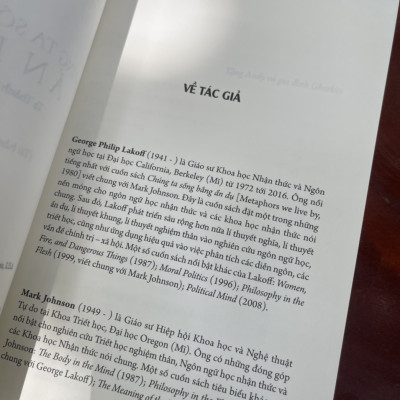 VỀ TÁC GIẢ
George Philip Lakoff (1941 - ) là Giáo sư Khoa học Nhận thức và Ngôn
ngữ học tại Đại học California, Berkeley (Mĩ) từ 1972 tới 2016. Ông nổi
tiếng nhất với cuốn sách Chúng ta sống bằng ẩn dụ [Metaphors we live by,
1980] viết chung với Mark Johnson. Đây là cuốn sách đặt một trong những
nền móng cho ngôn ngữ học nhận thức và các khoa học nhận thức nói
chung. Sau đó, Lakoff phát triển sâu rộng hơn nữa lí thuyết nghĩa, lí thuyết
ẩn dụ, lí thuyết khung, lí thuyết nghiệm thân vào nghiên cứu ngôn ngữ học,
triết học, cũng như ứng dụng hiệu quả vào việc phân tích các diễn ngôn, các
vấn đề chính trị – xã hội. Một số cuốn sách nổi bật khác của Lakoff: Women,
Fire, and Dangerous Things (1987); Moral Politics (1996); Philosophy in the
Flesh (1999, viết chung với Mark Johnson); Political Mind (2008).
Mark Johnson (1949 - ) là Giáo sư Hiệp hội Khoa học và Nghệ thuật
Tự do tại Khoa Triết học, Đại học Oregon (Mĩ). Ông có những đóng góp
nổi bật cho nghiên cứu Triết học nghiệm thân, Ngôn ngữ học nhận thức và
các Khoa học Nhận thức nói chung. Một số cuốn sách tiêu biểu khác của
Johnson: The Body in the Mind (1987); Philosophy in the
chung với George Lakoff); The Meaning of the